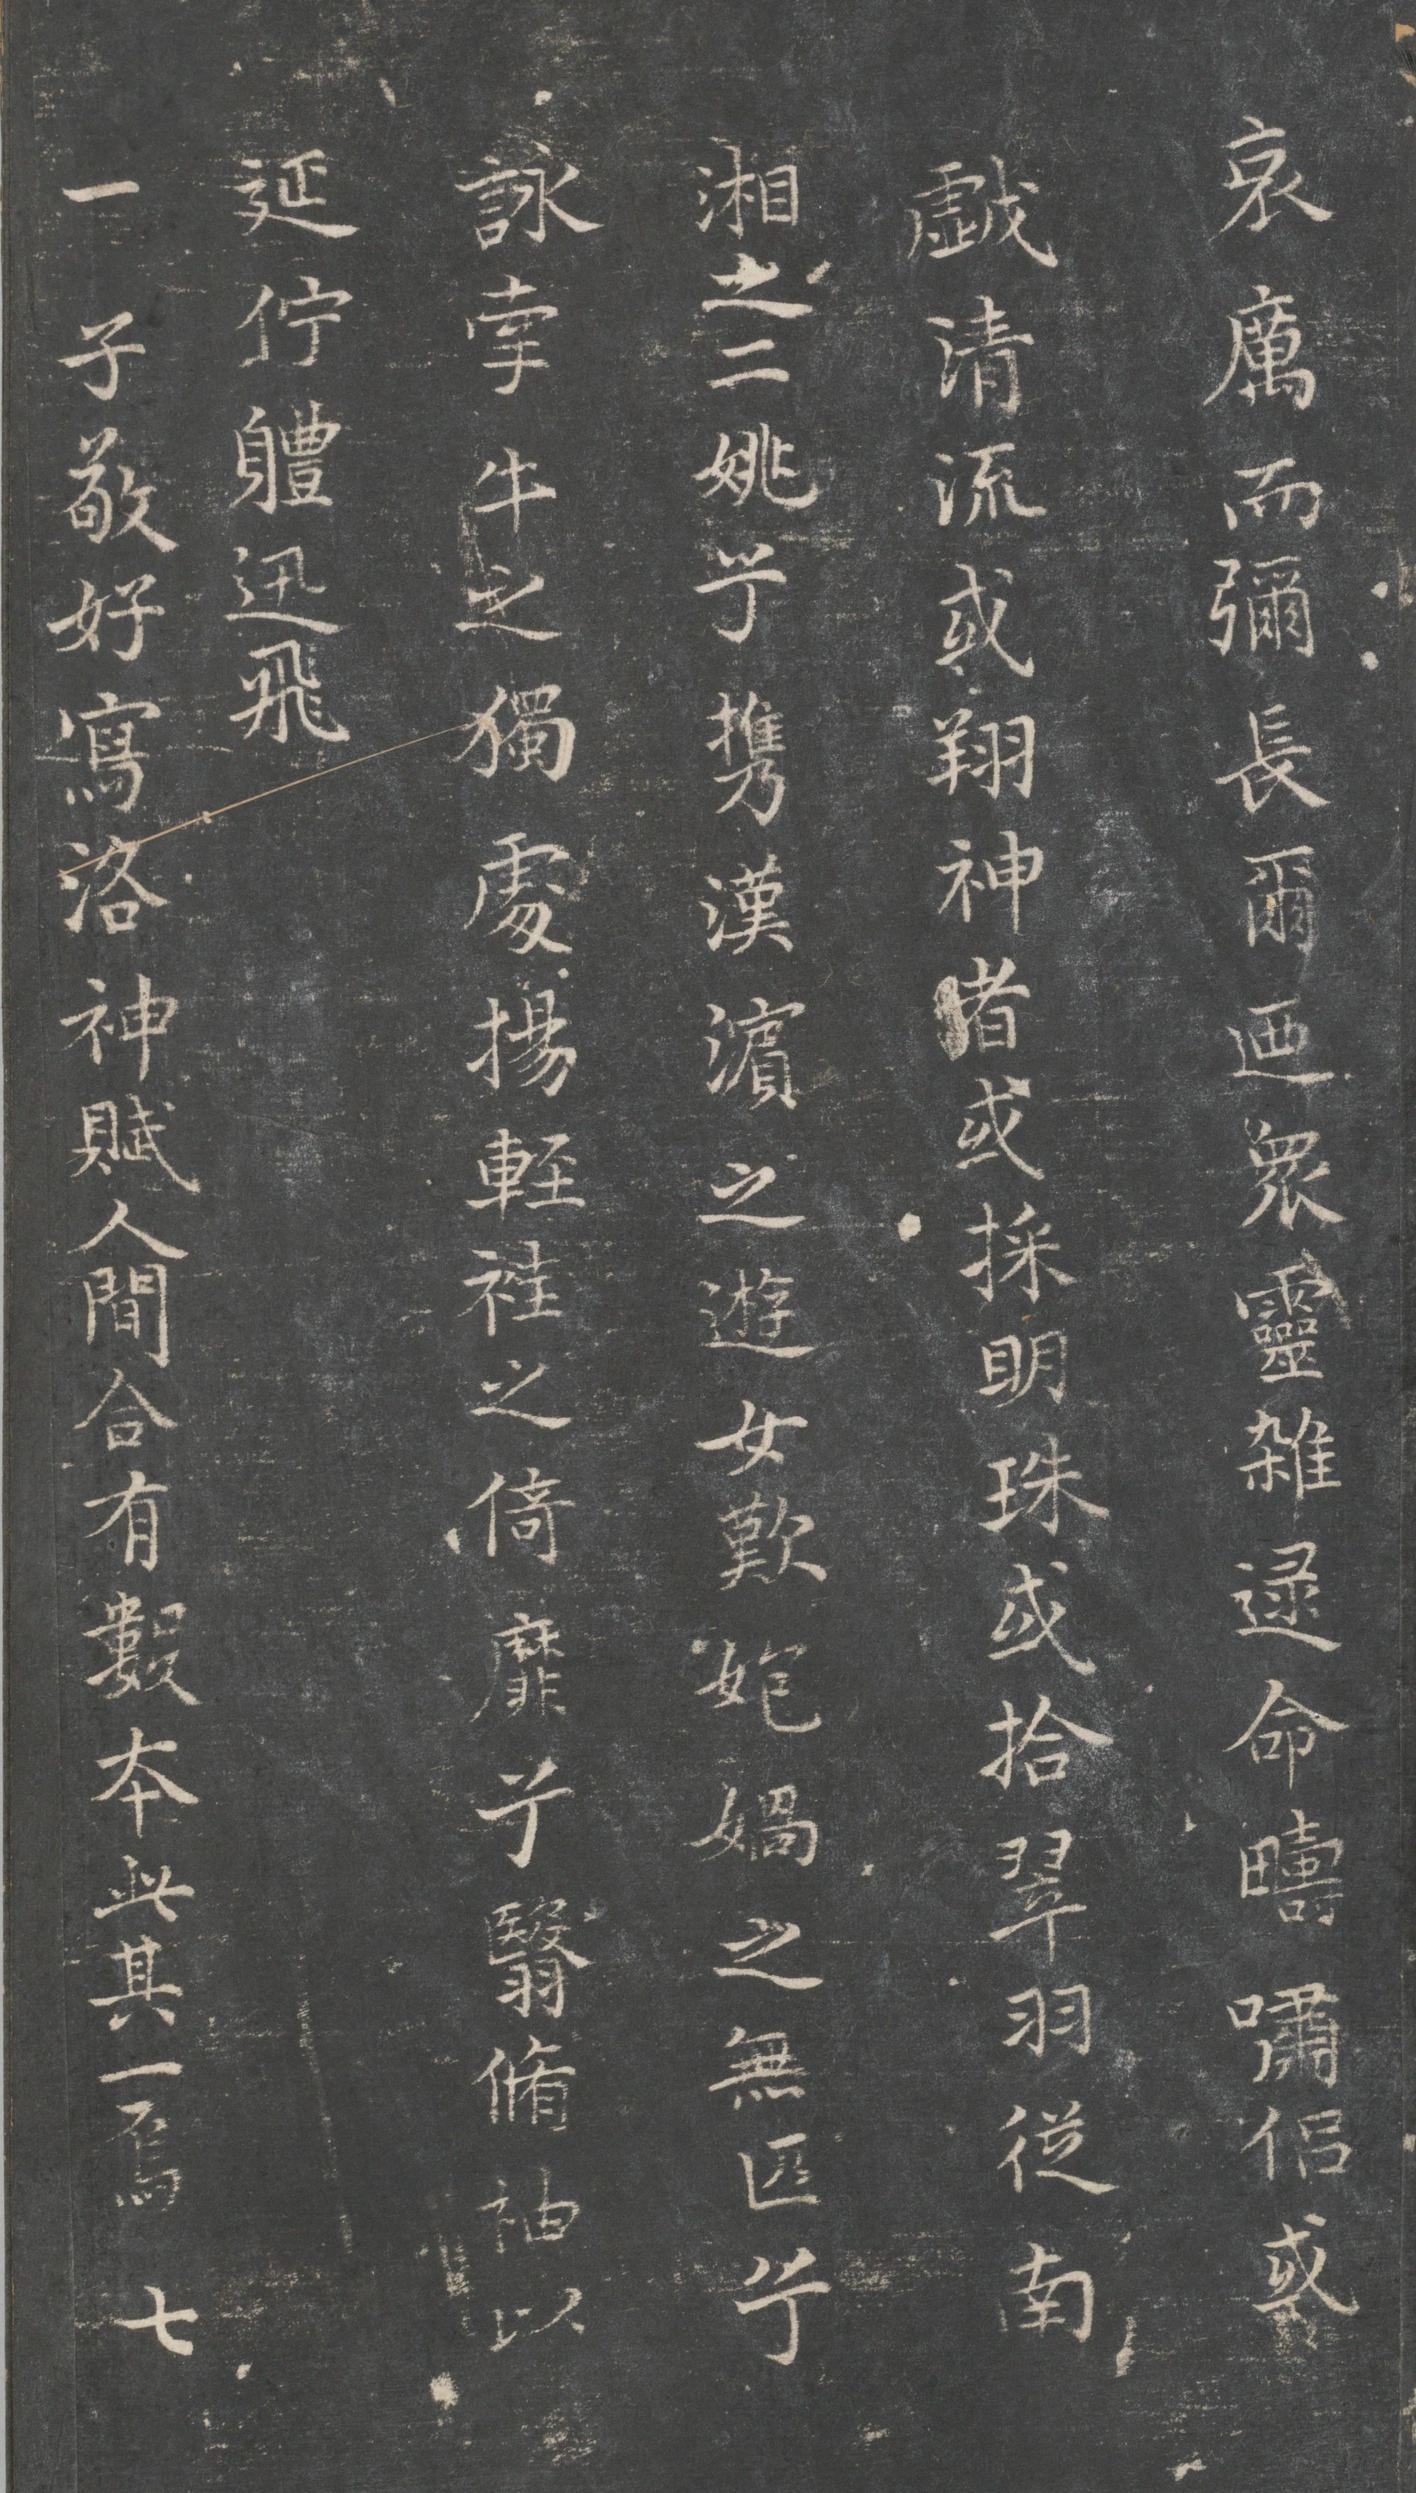 哀厲而彌長爾迺衆靈雜遝命疇嘯侶或
戲清流或翔神者或採明珠或拾翠羽從南
湘之二姚兮攜漢濱之遊女歎妑媧之無匹兮
詠牽牛之獨處揚輕袿之倚靡兮翳脩袖以
延佇軆迅飛
一子敬好寫洛神賦人間合有數本此其一焉七